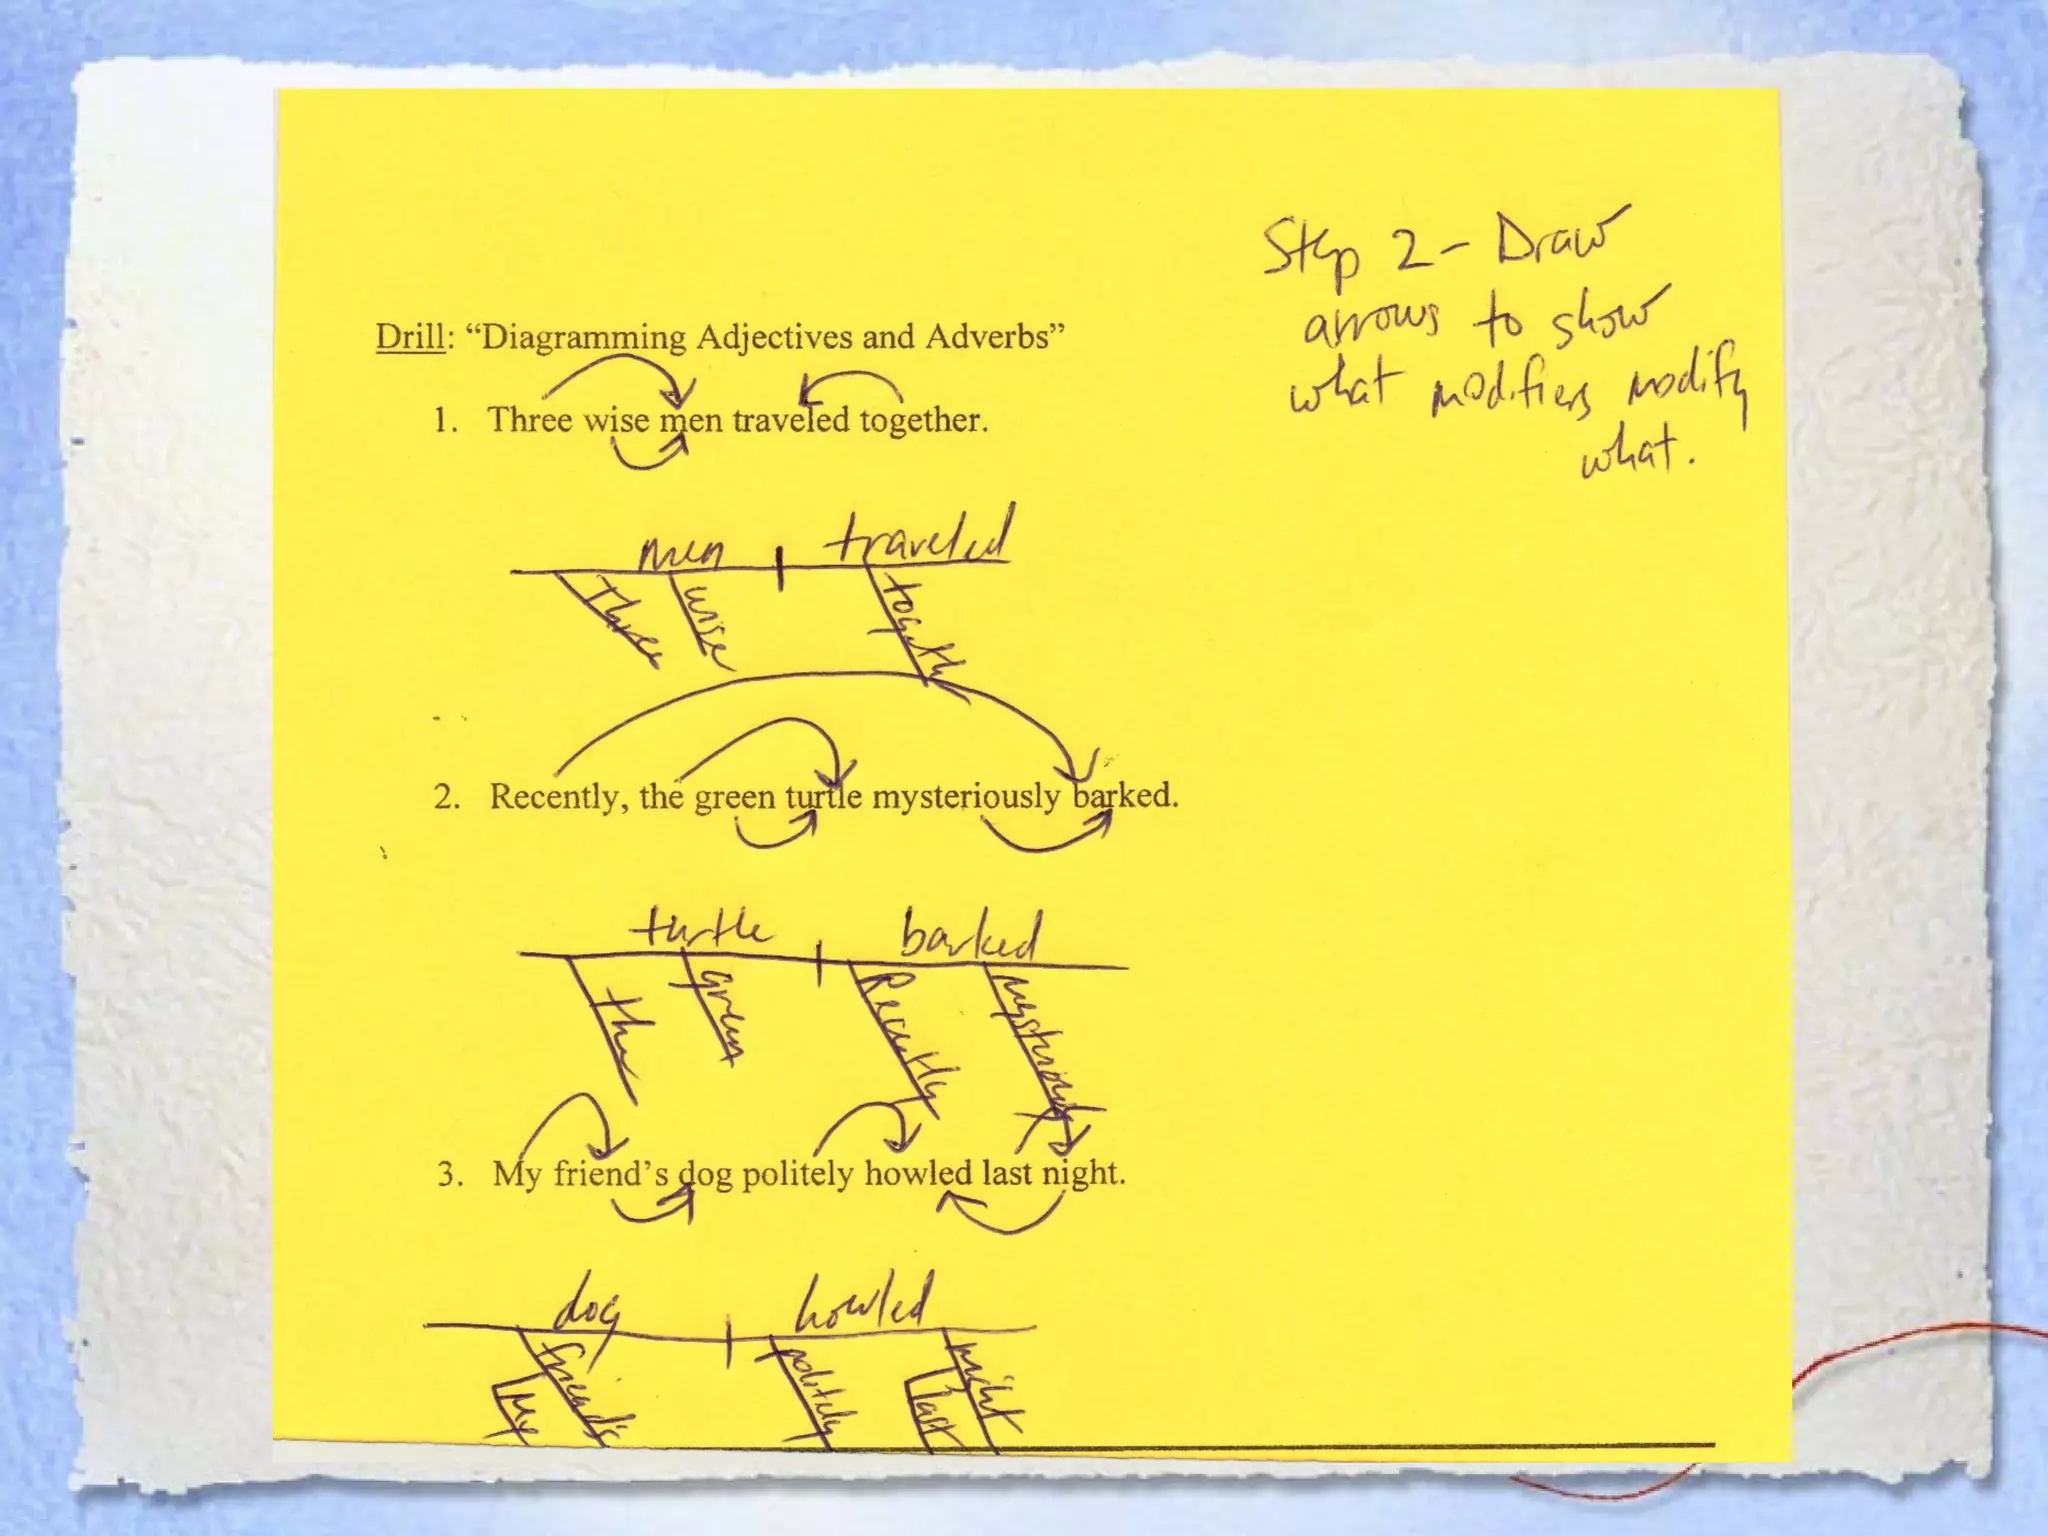 Step 2 - Draw
arrows to show
what modifiers modify
what.
Drill: “Diagramming Adjectives and Adverbs”
1. Three wise men traveled together.
men traveled
Three wise together
2. Recently, the green turtle mysteriously barked.
turtle barked
the green Recently mysteriously
3. My friend’s dog politely howled last night.
dog howled
friend's politely night
My last